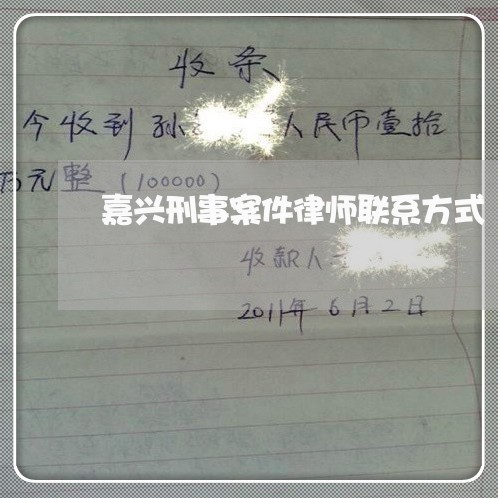 收条
今收到孙 人民币壹拾
万元整(100000)
嘉兴刑事案件律师联系方式
收款人
2011年6月2日